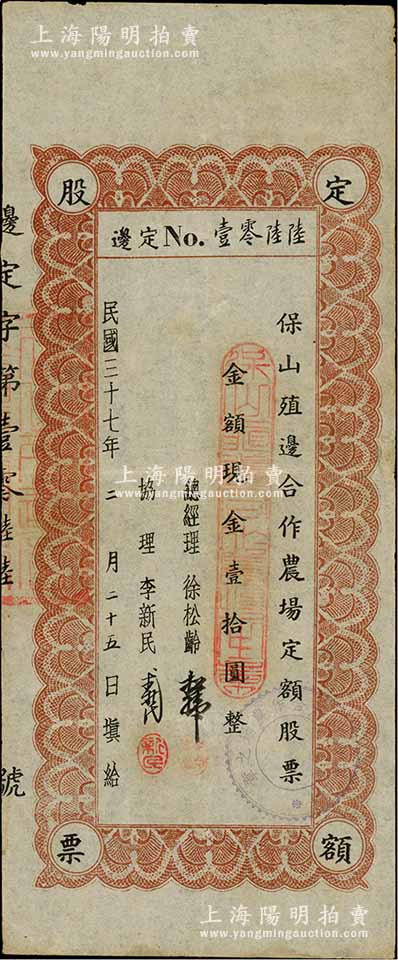 上海陽明拍賣
www.yangmingauction.com
定
額
股
票
邊定No.壹零陸陸
保山殖邊合作農場定額股票
金額現金壹拾圓整
總經理 徐松齡
協理 李新民
民國三十七年二月二十五日填給
邊定字第壹零陸陸號
上海陽明拍賣
www.yangmingauction.com
上海陽明拍賣
www.yangmingauction.com